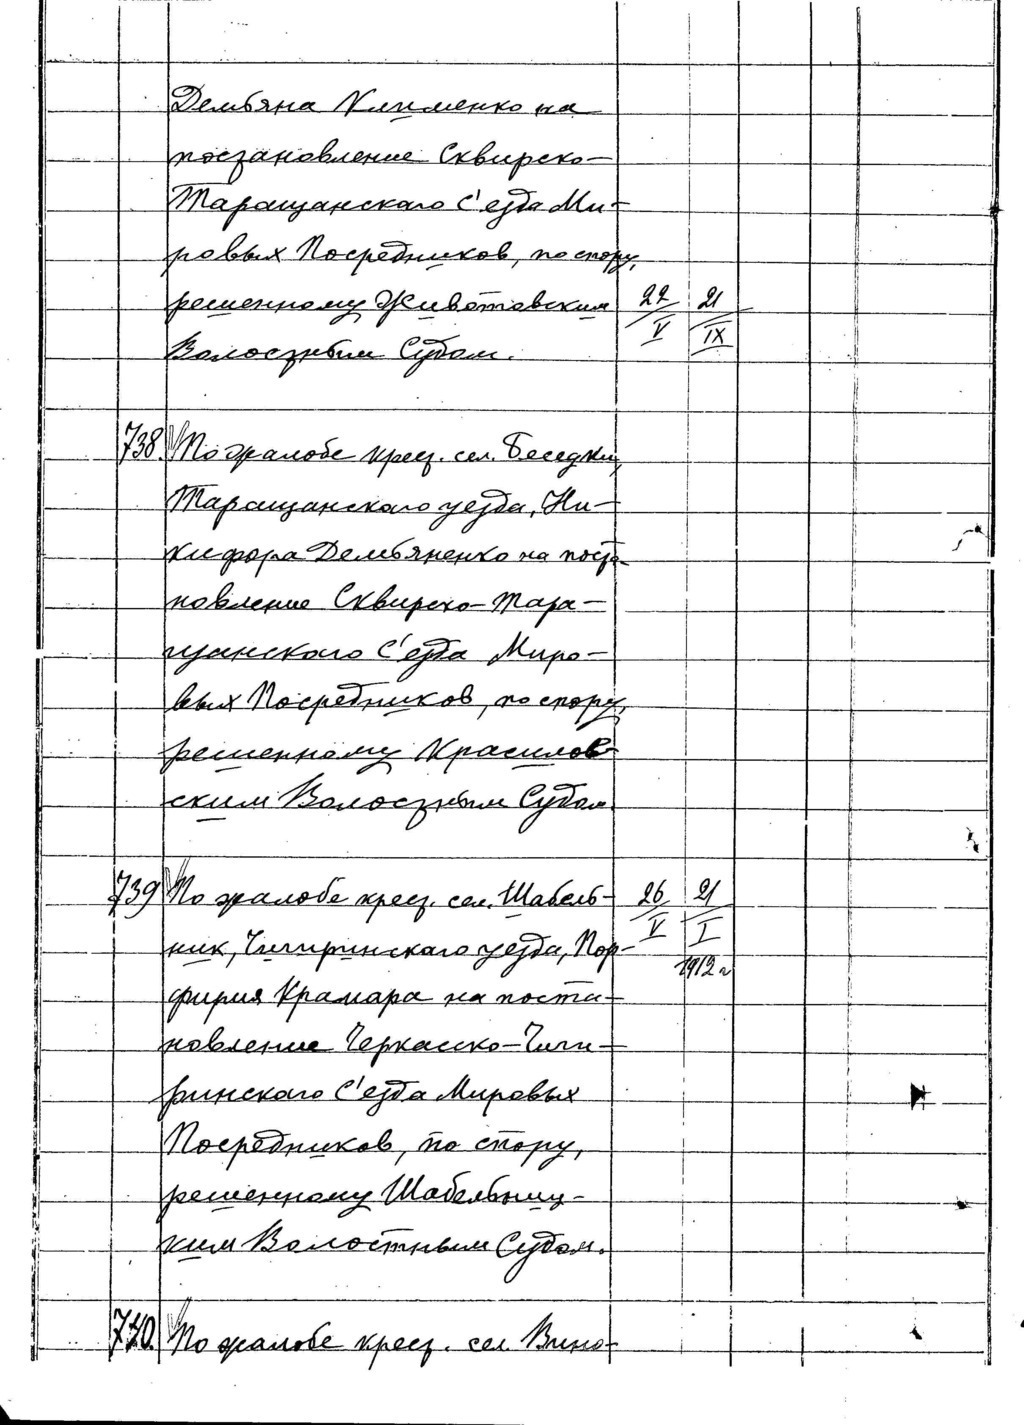 Демьяна Клименко на
постановление Сквирско-
Таращанского С'езда Ми-
ровых Посредников, по спору,
решенному Животовским 22/V 21/IX
Волостным Судом.
738. По жалобе крест. сел. Беседки,
Таращанского уезда, Ни-
кифора Демьяненко на поста-
новление Сквирско-Тара-
щанского С'езда Миро-
вых Посредников, по спору,
решенному Красилов-
ским Волостным Судом.
739 По жалобе крест. сел. Шабель- 26/V 21/I
ник, Чигиринскаго уезда, Пор- 1912 г
фирия Крамара на поста-
новление Черкасско-Чиги-
ринскаго С'езда Мировых
Посредников, по спору,
решенному Шабельниц-
ким Волостным Судом.
740. По жалобе крест. сел. Вино-